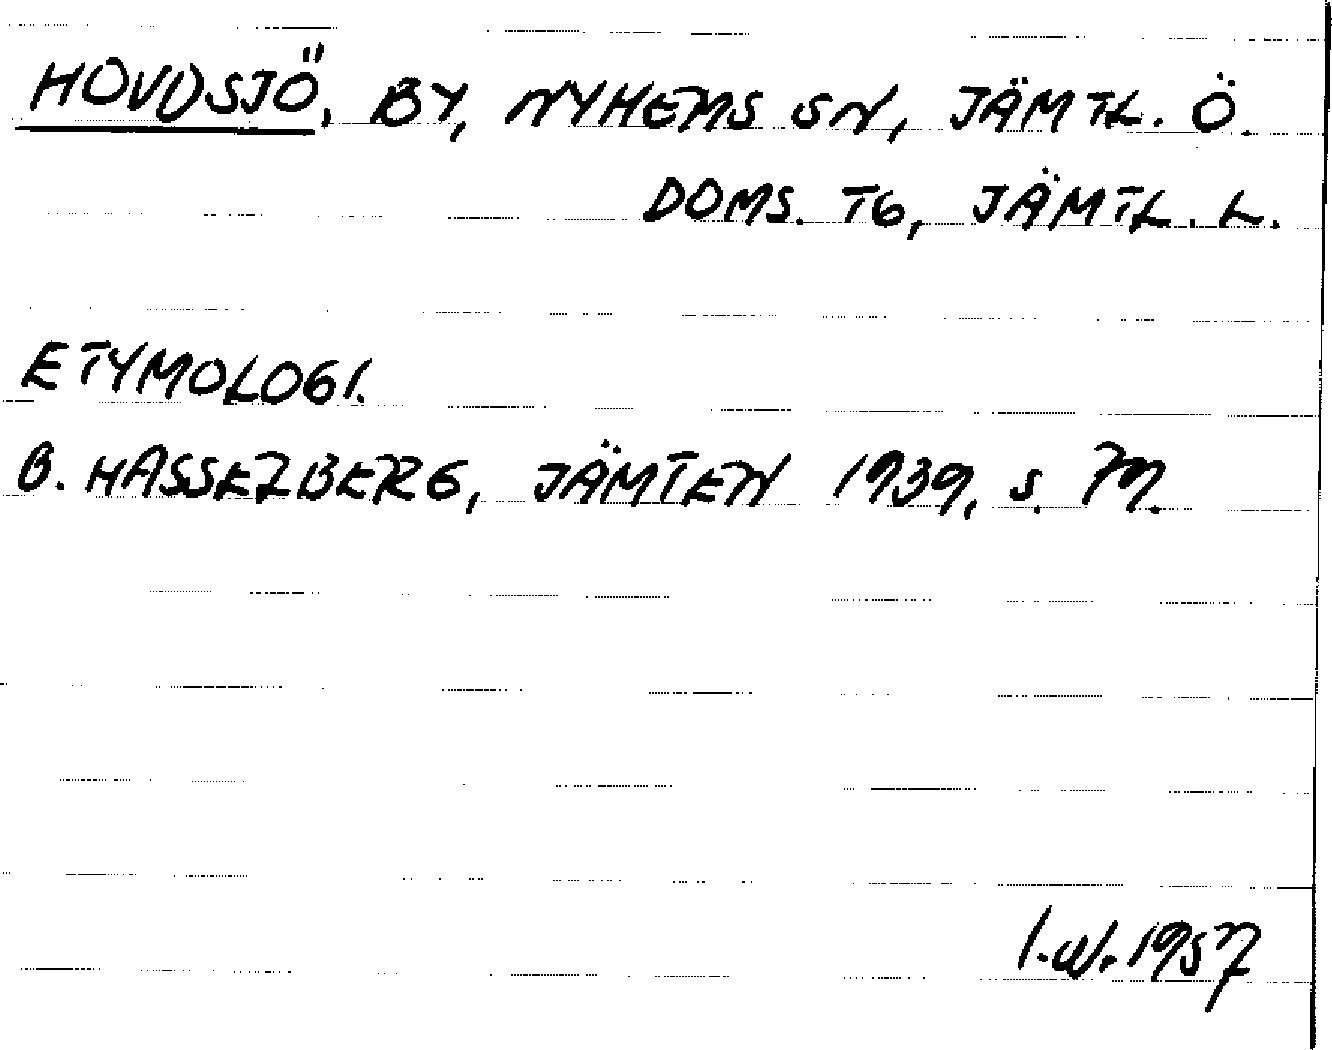 HOVDSJÖ, BY, NYHEMS SN, JÄMTL. Ö.
DOMS. TG, JÄMTL. L.
ETYMOLOGI.
B. HASSELBERG, JÄMTEN 1939, S.
I.W. 1957